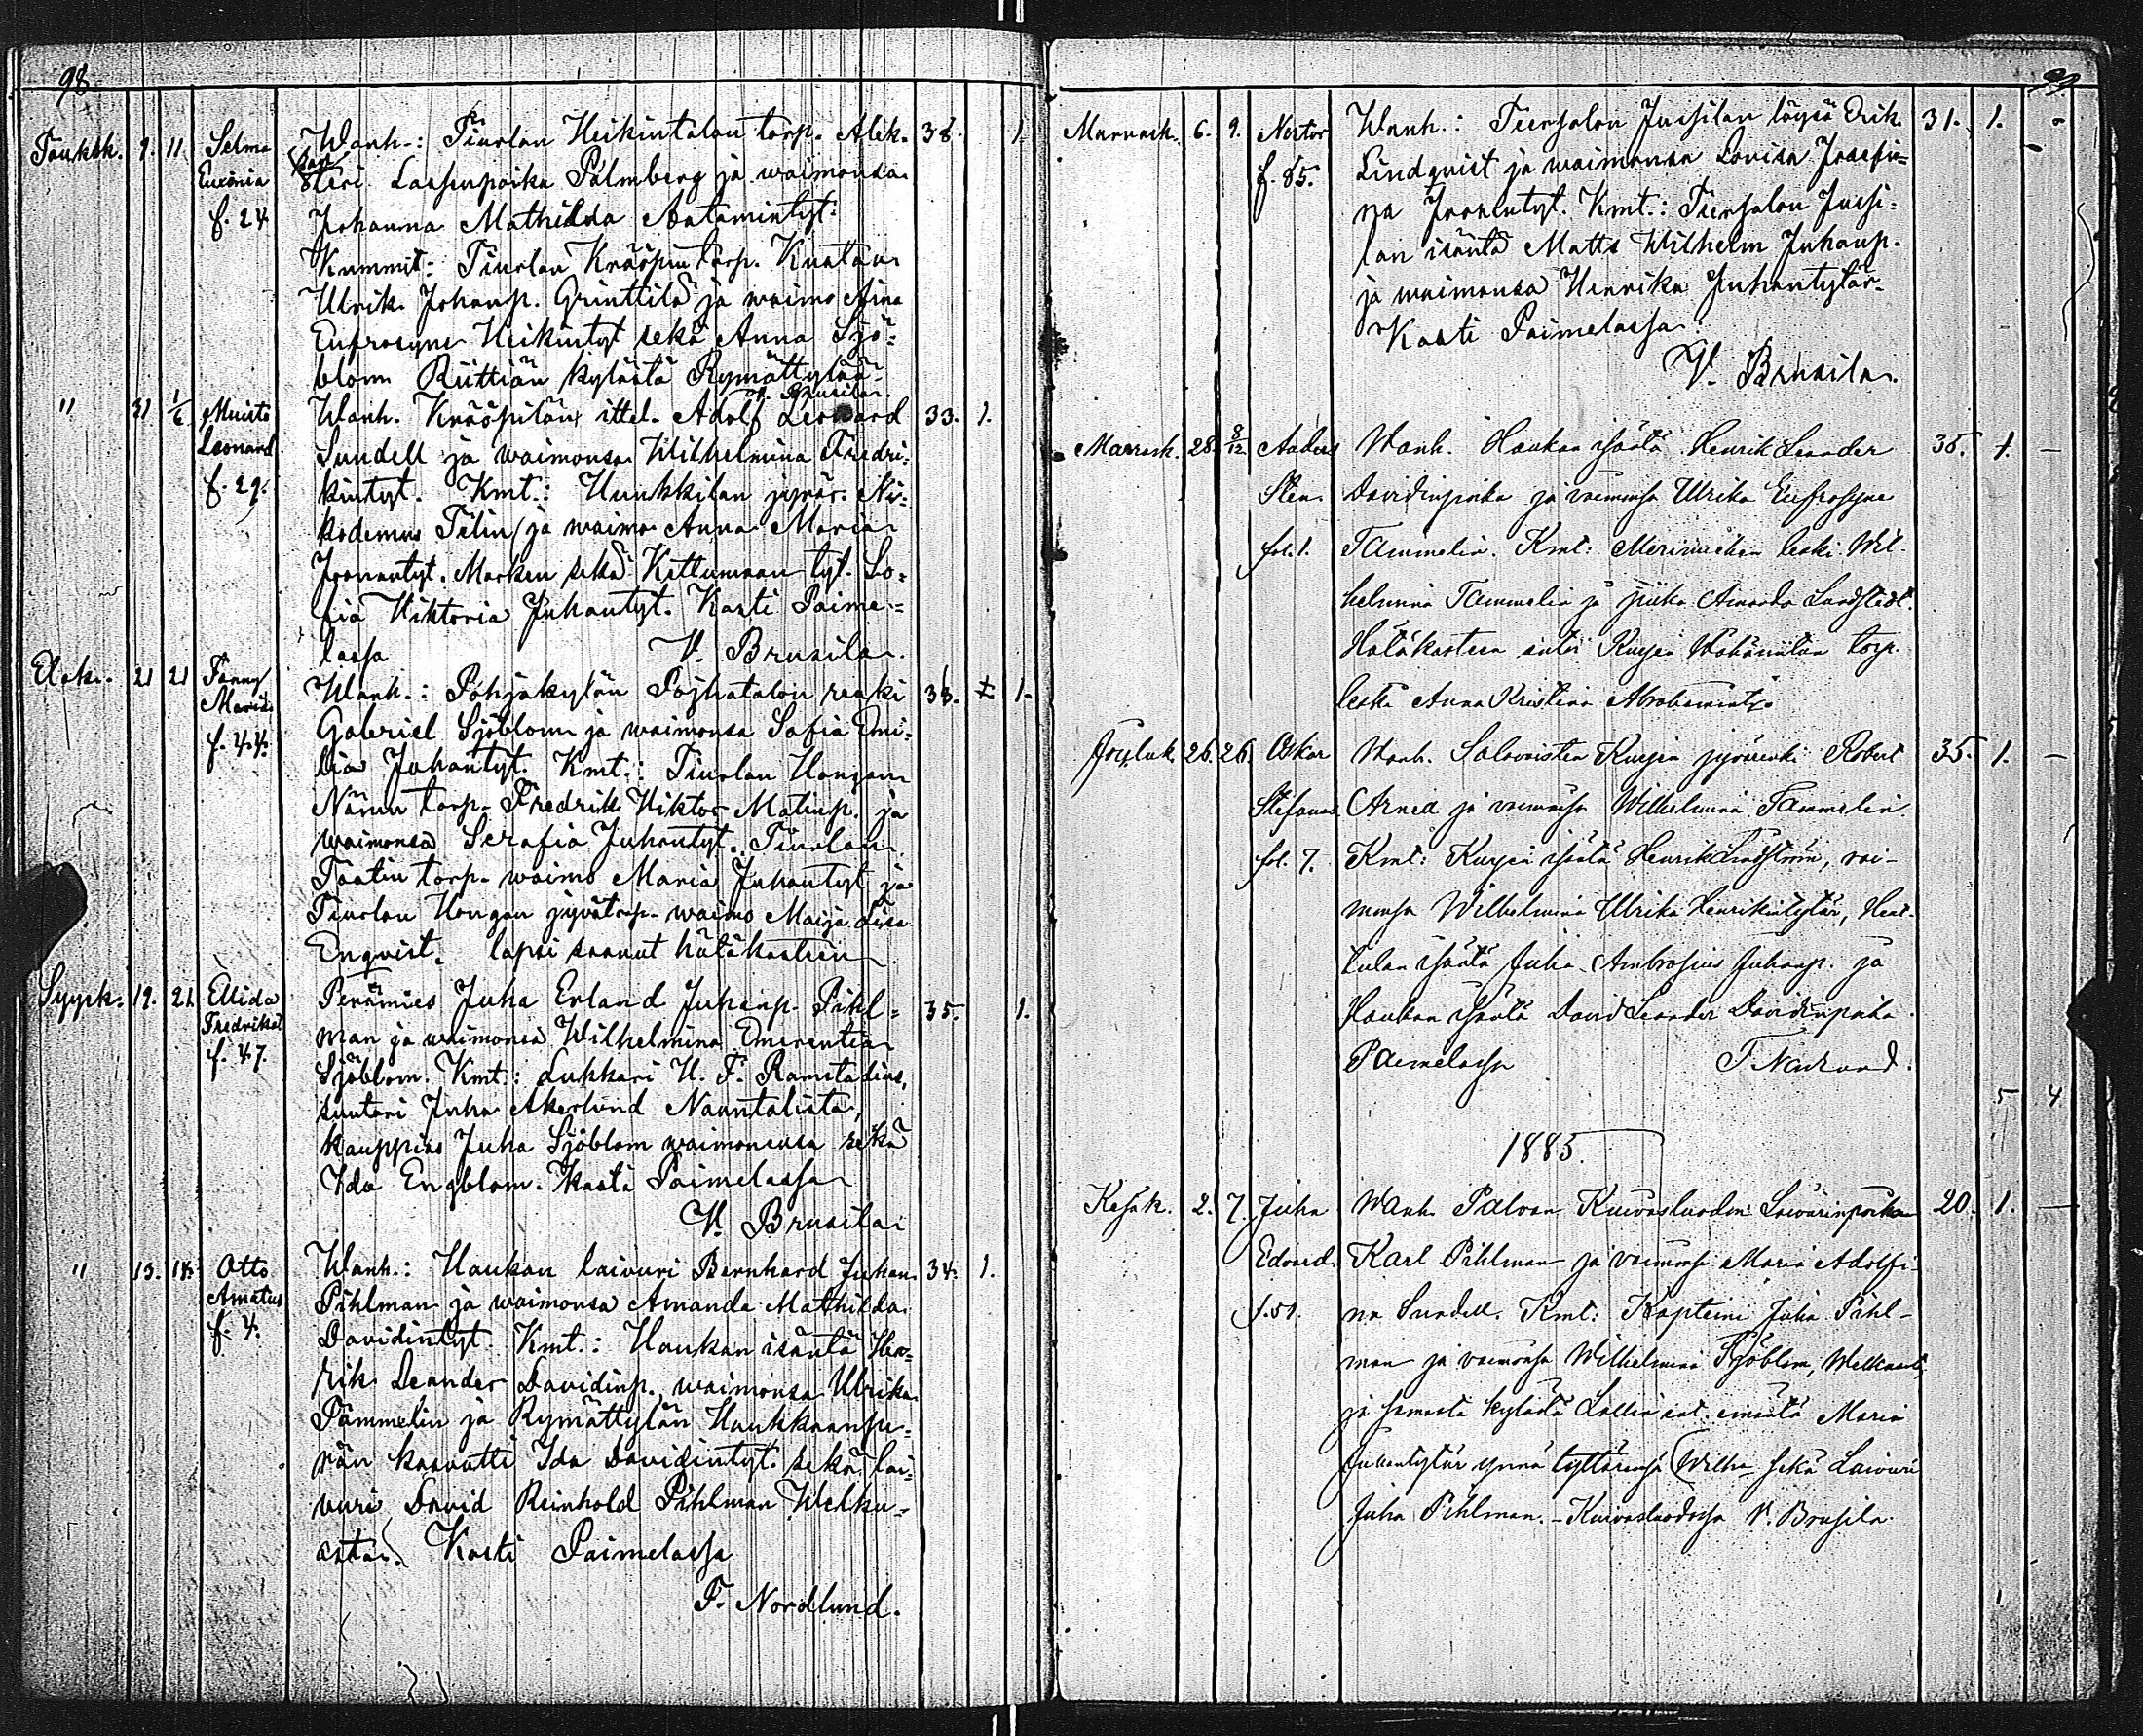 98
Toukok. 9. 11. Selma Wanh.: Tiurlan Heikintalon torp. Alek. 38. 1.
Euxénia santeri Lassenpoika Palmberg ja waimonsa
f. 24 Johanna Mathilda Aatamintyt.
Kummit: Tiurlan Knaöpin torp. Kustaa
Ulrik Johanp. Grinttilä ja waimo Aina
Eufrosyne Heikintyt sekä Anna Sjö-
blom Riittiön kylästä Rymättylää
V. Brusila.
" 31 1/6 Muisto Wanh. Knaöpilän ittel. Adolf Leonard 33. 1.
Leonard Sundell ja waimonsa Wilhelmina Fredri-
f. 29. kintyt. Kmt.: Hunkkilan jyvär. Ni-
kodemus Telin ja waimo Anna Maria
Joonantyt. Morken sekä Kettumaan tyt. So-
fia Wiktoria Juhantyt. Kasti Paime-
lassa V. Brusila.
Elok. 21 21 Fanny Wanh.: Pohjakylän Pojhatalon renki 38. 1.
Maria Gabriel Sjöblom ja waimonsa Sofia Emi-
f. 44. lia Juhantyt. Kmt.: Tiurlan Hongan
Nämn torp. Fredrik Wiktor Matinp. ja
waimonsa Serafia Juhantyt. Tiurlan
Taatin torp. waimo Maria Juhantyt ja
Tiurlan Hongan jyvätorp. waimo Maija Liisa
Enqvist. lapsi saanut hätäkasteen
Syysk. 19. 21. Elida Perämies Juha Erland Juhanp. Pihl- 35. 1.
Fredrika man ja waimonsa Wilhelmina Emerentia
f. 47. Sjöblom. Kmt.: Lukkari H. F. Ramstadius,
suutari Juha Akerlund Naantalista,
kauppias Juha Sjöblom waimonensa sekä
Ida Engblom. Kasti Paimelassa
V. Brusila
" 13. 18. Otto Wanh.: Haukan laivuri Bernhard Juhan. 34. 1.
Amatus Pihlman ja waimonsa Amanda Mathilda
f. 4. Davidintyt. Kmt.: Haukan isäntä Hen-
rik Leander Davidinp., waimonsa Ulrika
Tammelin ja Rymättylän Haukkaanpe-
rän kasvatti Ida Davidintyt. sekä lai-
vuri David Reinhold Pihlman Welku-
asta. Kasti Paimelassa
F. Nordlund.
99
Marrask. 6. 9. Nestor Wanh.: Tiersalon Jussilan löysä Erik 31. 1. -
f. 85. Lindqvist ja waimonsa Lovisa Josefii-
na Joonantyt. Kmt.: Tiersalon Jussi-
lan isäntä Matts Wilhelm Juhanp.
ja waimonsa Henrika Juhantytär.
Kasti Paimelassa
V. Brusila.
Marrask. 28. 8/12 Anders Wanh. Haukan isäntä Henrik Leander 38. 1. -
Sten. Davidinpoika ja vaimonsa Ulrika Eufrosyne
fol. 1. Tammelin. Kmt: Merimiehen leski Wil-
helmina Tammelin ja piika Amanda Lundstedt.
Hätäkasteen antoi Kurjen Wähäniitun torp.
leski Anna Kristina Abrahamint.
Jouluk. 26. 26. Oskar Wanh. Salavaisten Kurjen jyvärenki Robert 35. 1. -
Stefanus Arned ja vaimonsa Wilhelmina Tammelin.
fol. 7. Kmt: Kurjen isäntä Henrik Lindström, vai-
monsa Wilhelmina Ulrika Henrikintytär, Heik-
kilan isäntä Juha Ambrosius Juhanp. ja
Haukan isäntä David Leander Davidinpoika.
Paimelassa F. Nordlund.
5 4
1885.
Kesäk. 2. 7. Juha Wanh. Palvan Kuivasluodon Laivurinpoika 20. 1. -
Edvard. Karl Pihlman ja vaimonsa Maria Adolfi-
f. 51. na Sundell. Kmt: Kapteini Juha Pihl-
man ja vaimonsa Wilhelmina Sjöblom, Welkuasta,
ja samasta kylästä Lallin ent. emäntä Maria
Juhantytär ynnä tyttärensä Wilha- sekä Laivuri
Juha Pihlman. - Kuivasluodossa V. Brusila.
1